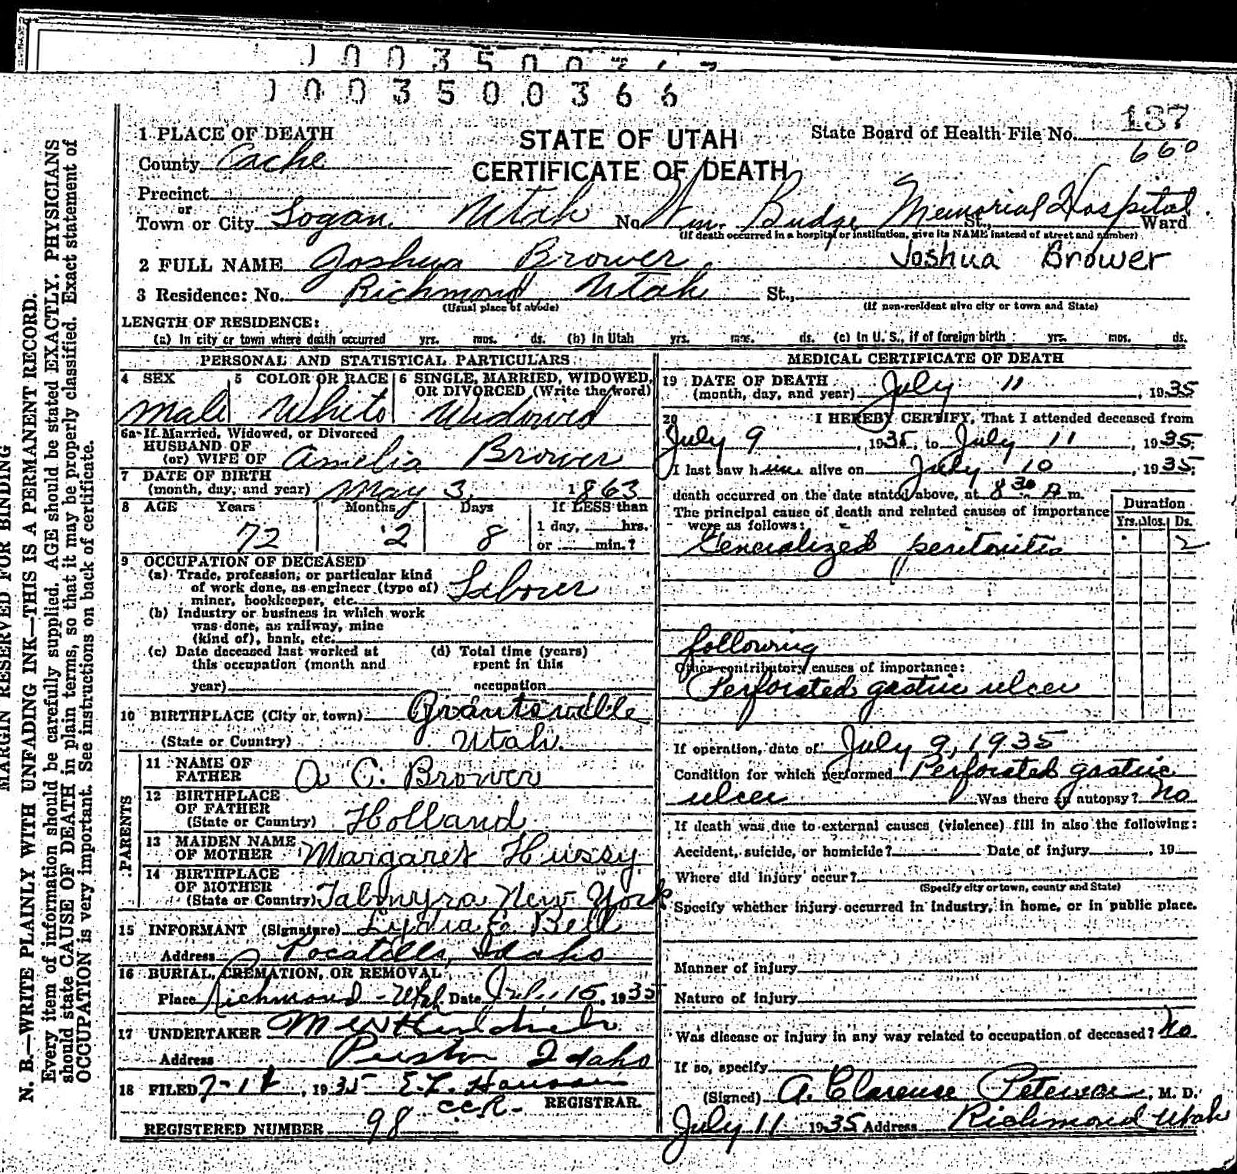 1003500366
187
660
1 PLACE OF DEATH
STATE OF UTAH
CERTIFICATE OF DEATH
State Board of Health File No.
County Cache
Precinct
or
Town or City Logan Utah No. Wm. Budge Memorial Hospital St., Ward
(If death occurred in a hospital or institution, give its NAME instead of street and number)
2 FULL NAME Joshua Brower Joshua Brower
3 Residence: No. Richmond Utah St.,
(Usual place of abode) (If non-resident give city or town and State)
LENGTH OF RESIDENCE:
(a) In city or town where death occurred yrs. mos. ds. (b) In Utah yrs. mos. ds. (c) In U. S., if of foreign birth yrs. mos. ds.
PERSONAL AND STATISTICAL PARTICULARS
4 SEX 5 COLOR OR RACE 6 SINGLE, MARRIED, WIDOWED, OR DIVORCED (Write the word)
Male White Widowed
6a If Married, Widowed, or Divorced
HUSBAND OF
(or) WIFE OF Amelia Brower
7 DATE OF BIRTH
(month, day, and year) May 3, 1863
8 AGE Years Months Days If LESS than
72 2 8 1 day, hrs.
or min.?
9 OCCUPATION OF DECEASED
(a) Trade, profession, or particular kind
of work done, as engineer (type of)
miner, bookkeeper, etc. Laborer
(b) Industry or business in which work
was done, as railway, mine
(kind of), bank, etc.
(c) Date deceased last worked at
this occupation (month and
year)
(d) Total time (years)
spent in this
occupation
10 BIRTHPLACE (City or town) Grantsville
(State or Country) Utah.
PARENTS
11 NAME OF
FATHER A C. Brower
12 BIRTHPLACE
OF FATHER
(State or Country) Holland
13 MAIDEN NAME
OF MOTHER Margaret Hussy
14 BIRTHPLACE
OF MOTHER
(State or Country) New York
15 INFORMANT (Signature) Lydia E Bell
Address Pocatello, Idaho
16 BURIAL, CREMATION, OR REMOVAL
Place Richmond - Utah Date July 15, 1935
17 UNDERTAKER
Address Preston Idaho
18 FILED 7-18, 1935 E. L. Hansen
REGISTRAR.
REGISTERED NUMBER 98
MEDICAL CERTIFICATE OF DEATH
19 DATE OF DEATH
(month, day, and year) July 11, 1935
20 I HEREBY CERTIFY, That I attended deceased from
July 9, 1935, to July 11, 1935.
I last saw him alive on July 10, 1935;
death occurred on the date stated above, at 8 30 A m.
The principal cause of death and related causes of importance
were as follows:
Duration
Yrs. Mos. Ds.
Generalized peritonitis 2
following
Other contributory causes of importance:
Perforated gastric ulcer
If operation, date of July 9, 1935
Condition for which performed Perforated gastric
ulcer Was there an autopsy? No
If death was due to external causes (violence) fill in also the following:
Accident, suicide, or homicide? Date of injury , 19
Where did injury occur?
(Specify city or town, county and State)
Specify whether injury occurred in industry, in home, or in public place.
Manner of injury
Nature of injury
Was disease or injury in any way related to occupation of deceased? No
If so, specify
(Signed) A. Clarence , M. D.
July 11 1935 Address Richmond Utah
MARGIN RESERVED FOR BINDING
N. B.—WRITE PLAINLY WITH UNFADING INK—THIS IS A PERMANENT RECORD.
Every item of information should be carefully supplied. AGE should be stated EXACTLY. PHYSICIANS
should state CAUSE OF DEATH in plain terms, so that it may be properly classified. Exact statement of
OCCUPATION is very important. See instructions on back of certificate.